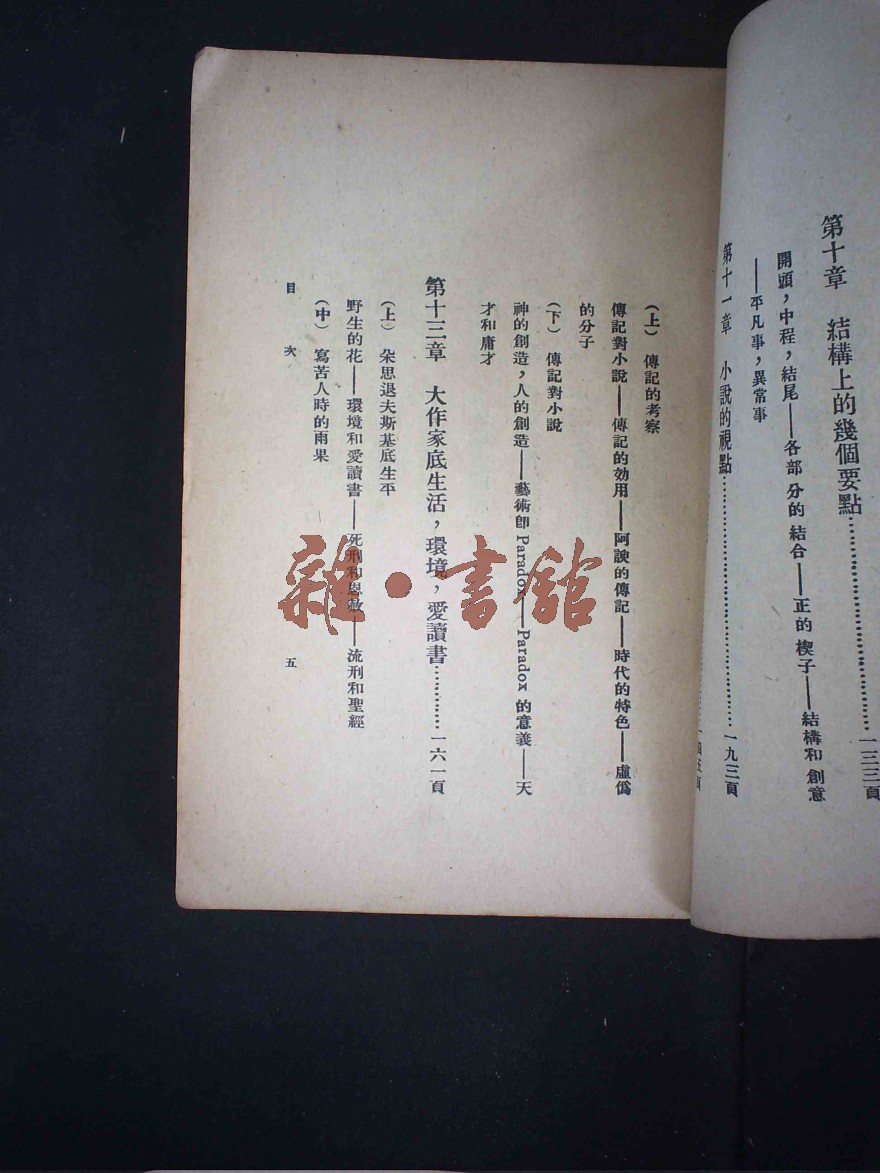 第十章　結構上的幾個要點…………一三三頁
開頭，中程，結尾——各部分的結合——正的楔子——結構和創意
——平凡事，異常事
第十一章　小說的視點…………一九三頁
（上）　傳記的考察
傳記對小說——傳記的効用——阿諛的傳記——時代的特色——虛僞
的分子
（下）　傳記對小說
神的創造，人的創造——藝術卽 Paradox——Paradox 的意義——天
才和庸才
第十三章　大作家底生活，環境，愛讀書…………一六一頁
（上）　朵思退夫斯基底生平
野生的花——環境和愛讀書——死刑和恩赦——流刑和聖經
（中）　寫苦人時的雨果
目次
五
雜·書館